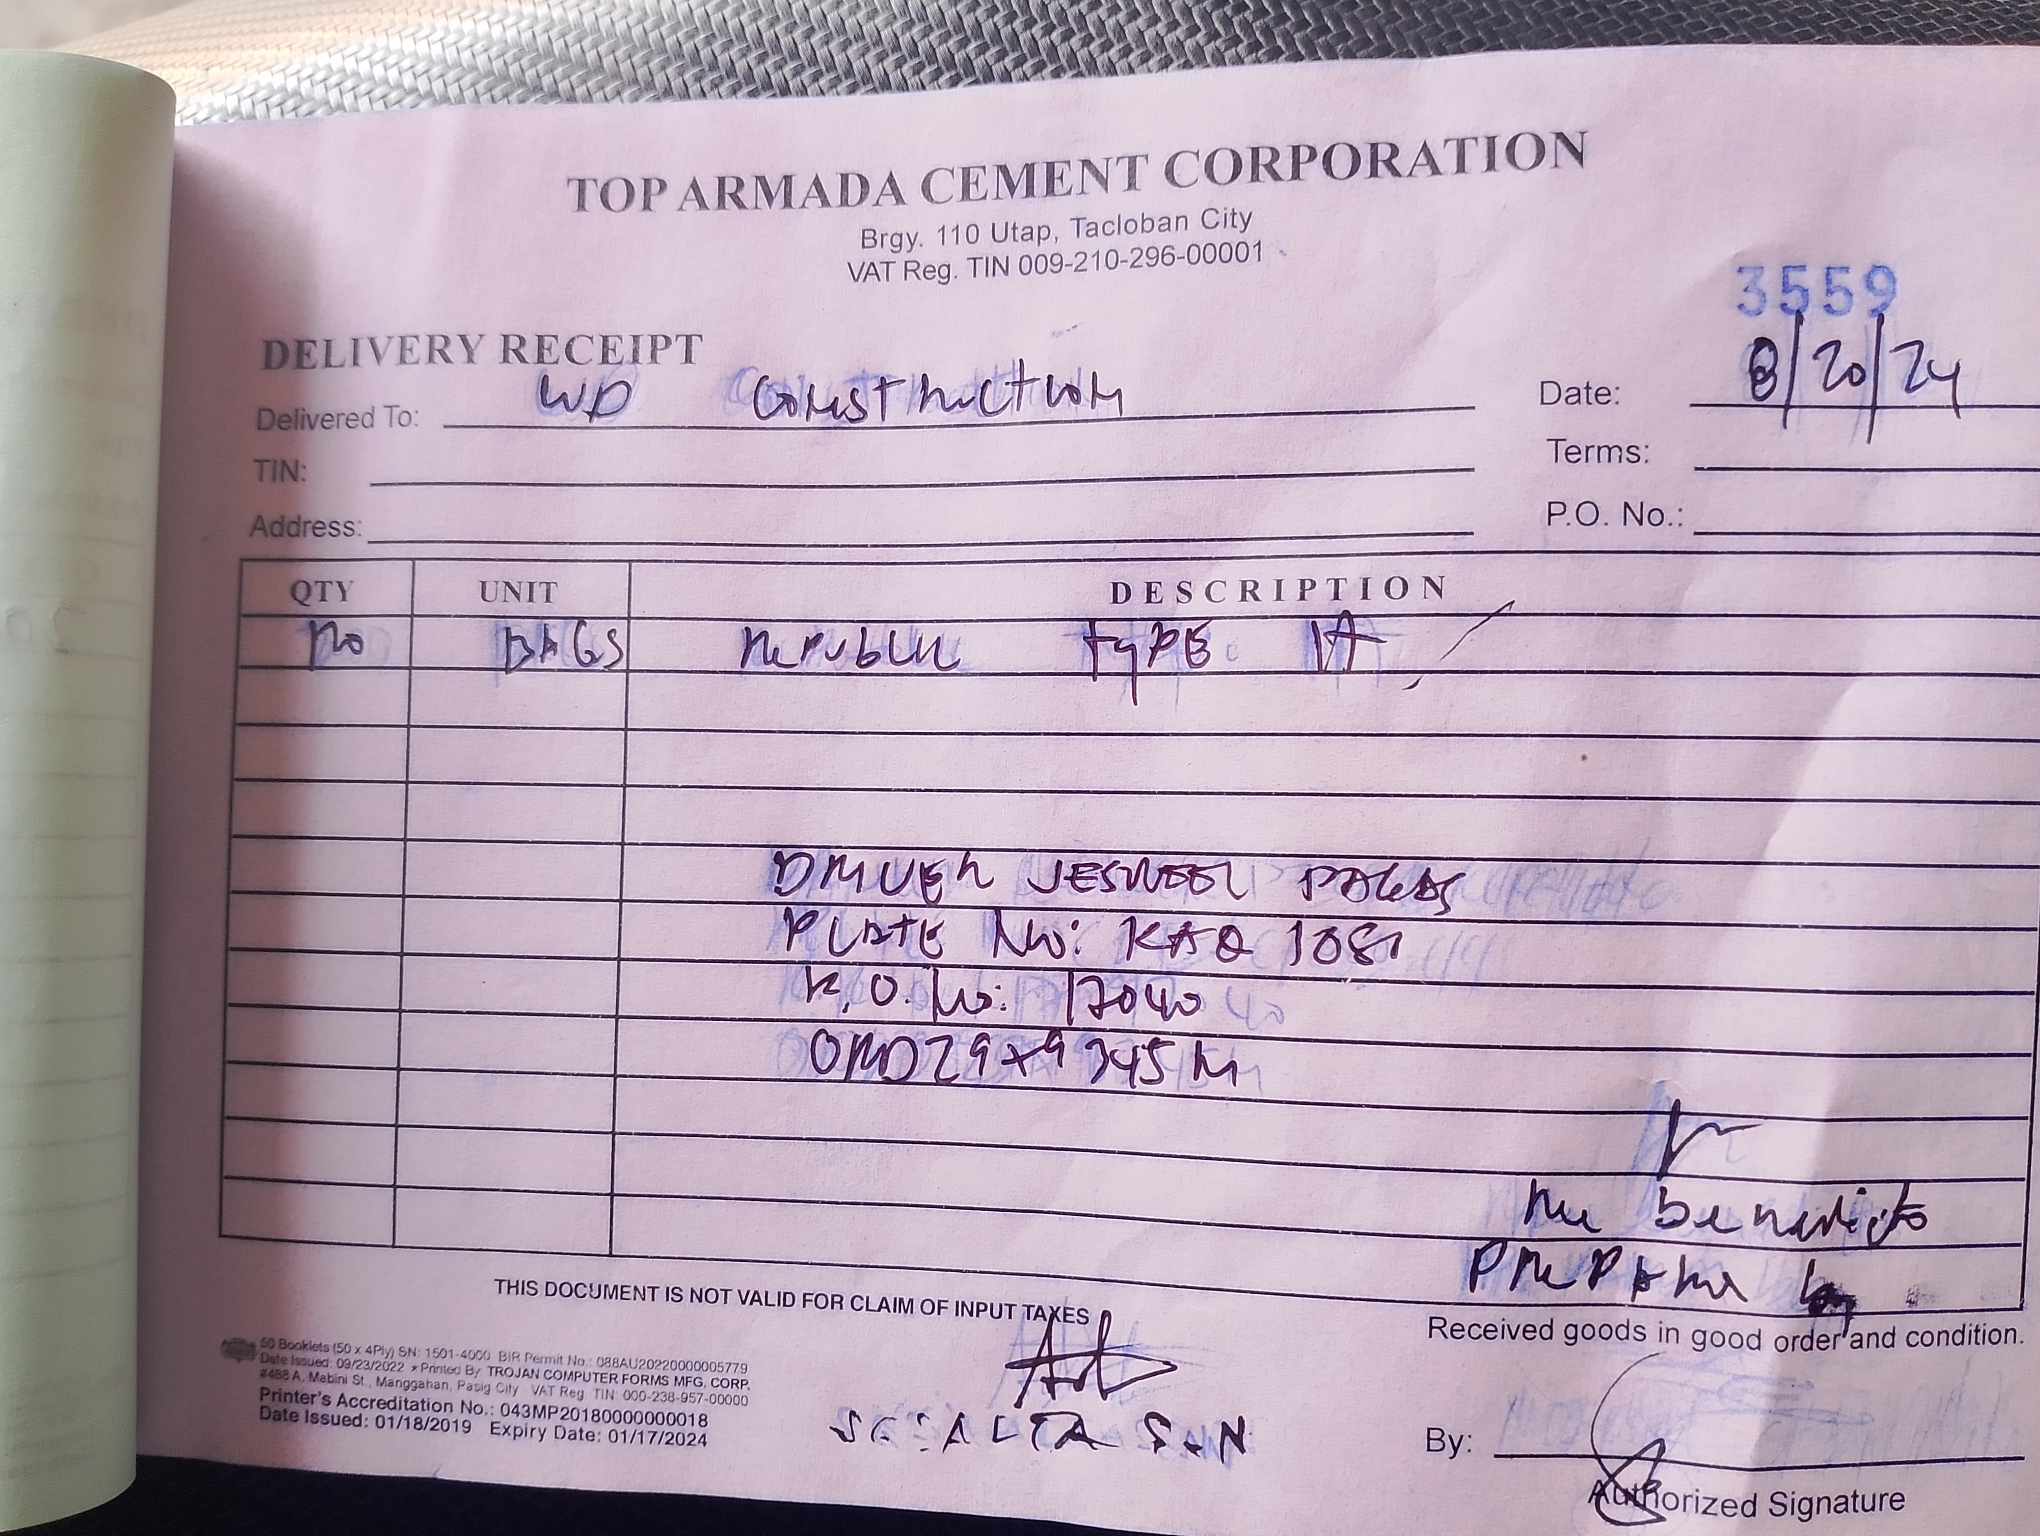 TOP ARMADA CEMENT CORPORATION
Brgy. 110 Utap, Tacloban City
VAT Reg. TIN 009-210-296-00001
3559
DELIVERY RECEIPT
Delivered To: WD Construction
Date: 8/20/24
TIN:
Terms:
Address:
P.O. No.:
QTY UNIT DESCRIPTION
BAGS Republic TYPE 1T
DRIVER JESNEEL PAGAS
PLATE No: KAQ 1081
R.O. No: 17040
THIS DOCUMENT IS NOT VALID FOR CLAIM OF INPUT TAXES
benedicto
PREPARE by
Received goods in good order and condition.
50 Booklets (50 x 4Ply) SN: 1501-4000 BIR Permit No.: 088AU20220000005779
Date Issued: 09/23/2022 * Printed By TROJAN COMPUTER FORMS MFG. CORP.
#488 A. Mabini St., Manggahan, Pasig City VAT Reg. TIN: 000-238-957-00000
Printer's Accreditation No.: 043MP20180000000018
Date Issued: 01/18/2019 Expiry Date: 01/17/2024
By:
Authorized Signature